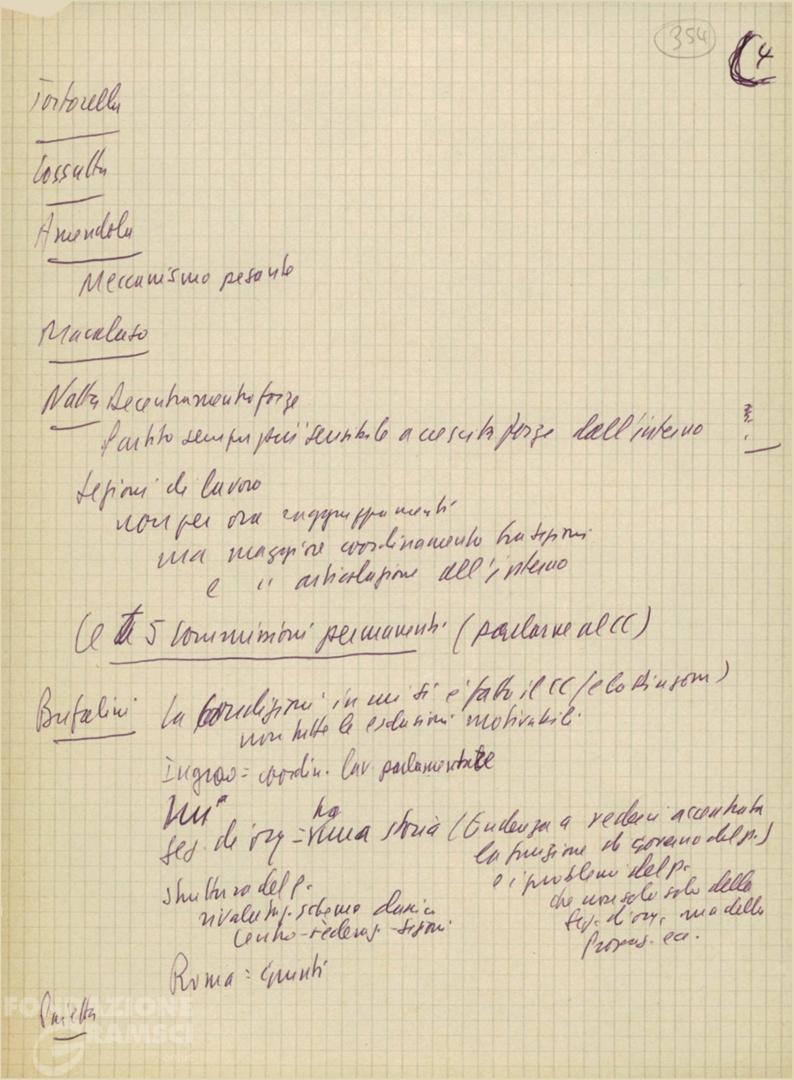 354
4
Tortorella
Cossutta
Amendola
Meccanismo pesante
Macaluso
Natta Decentramento forze
Partito sempre più sensibile a crescita forze dall'interno
Sezioni di lavoro
non per ora raggruppamenti
ma maggiore coordinamento tra sezioni
e " articolazione all'interno
Le 5 Commissioni permanenti (parlarne al CC)
Bufalini La condizioni in cui si è fatto il CC
non tutte le esclusioni motivabili
Ingrao = coordin. lav. parlamentare
Sez. di org = ha una storia (tendenza a vederci accentrata
la funzione di governo del p.)
e i problemi del p.
che non solo solo della
Sez. d'org. ma della
Propag. ecc.
Struttura del p.
schema classico
Centro-federaz-sezioni.
Roma =
Pajetta
FONDAZIONE
GRAMSCI